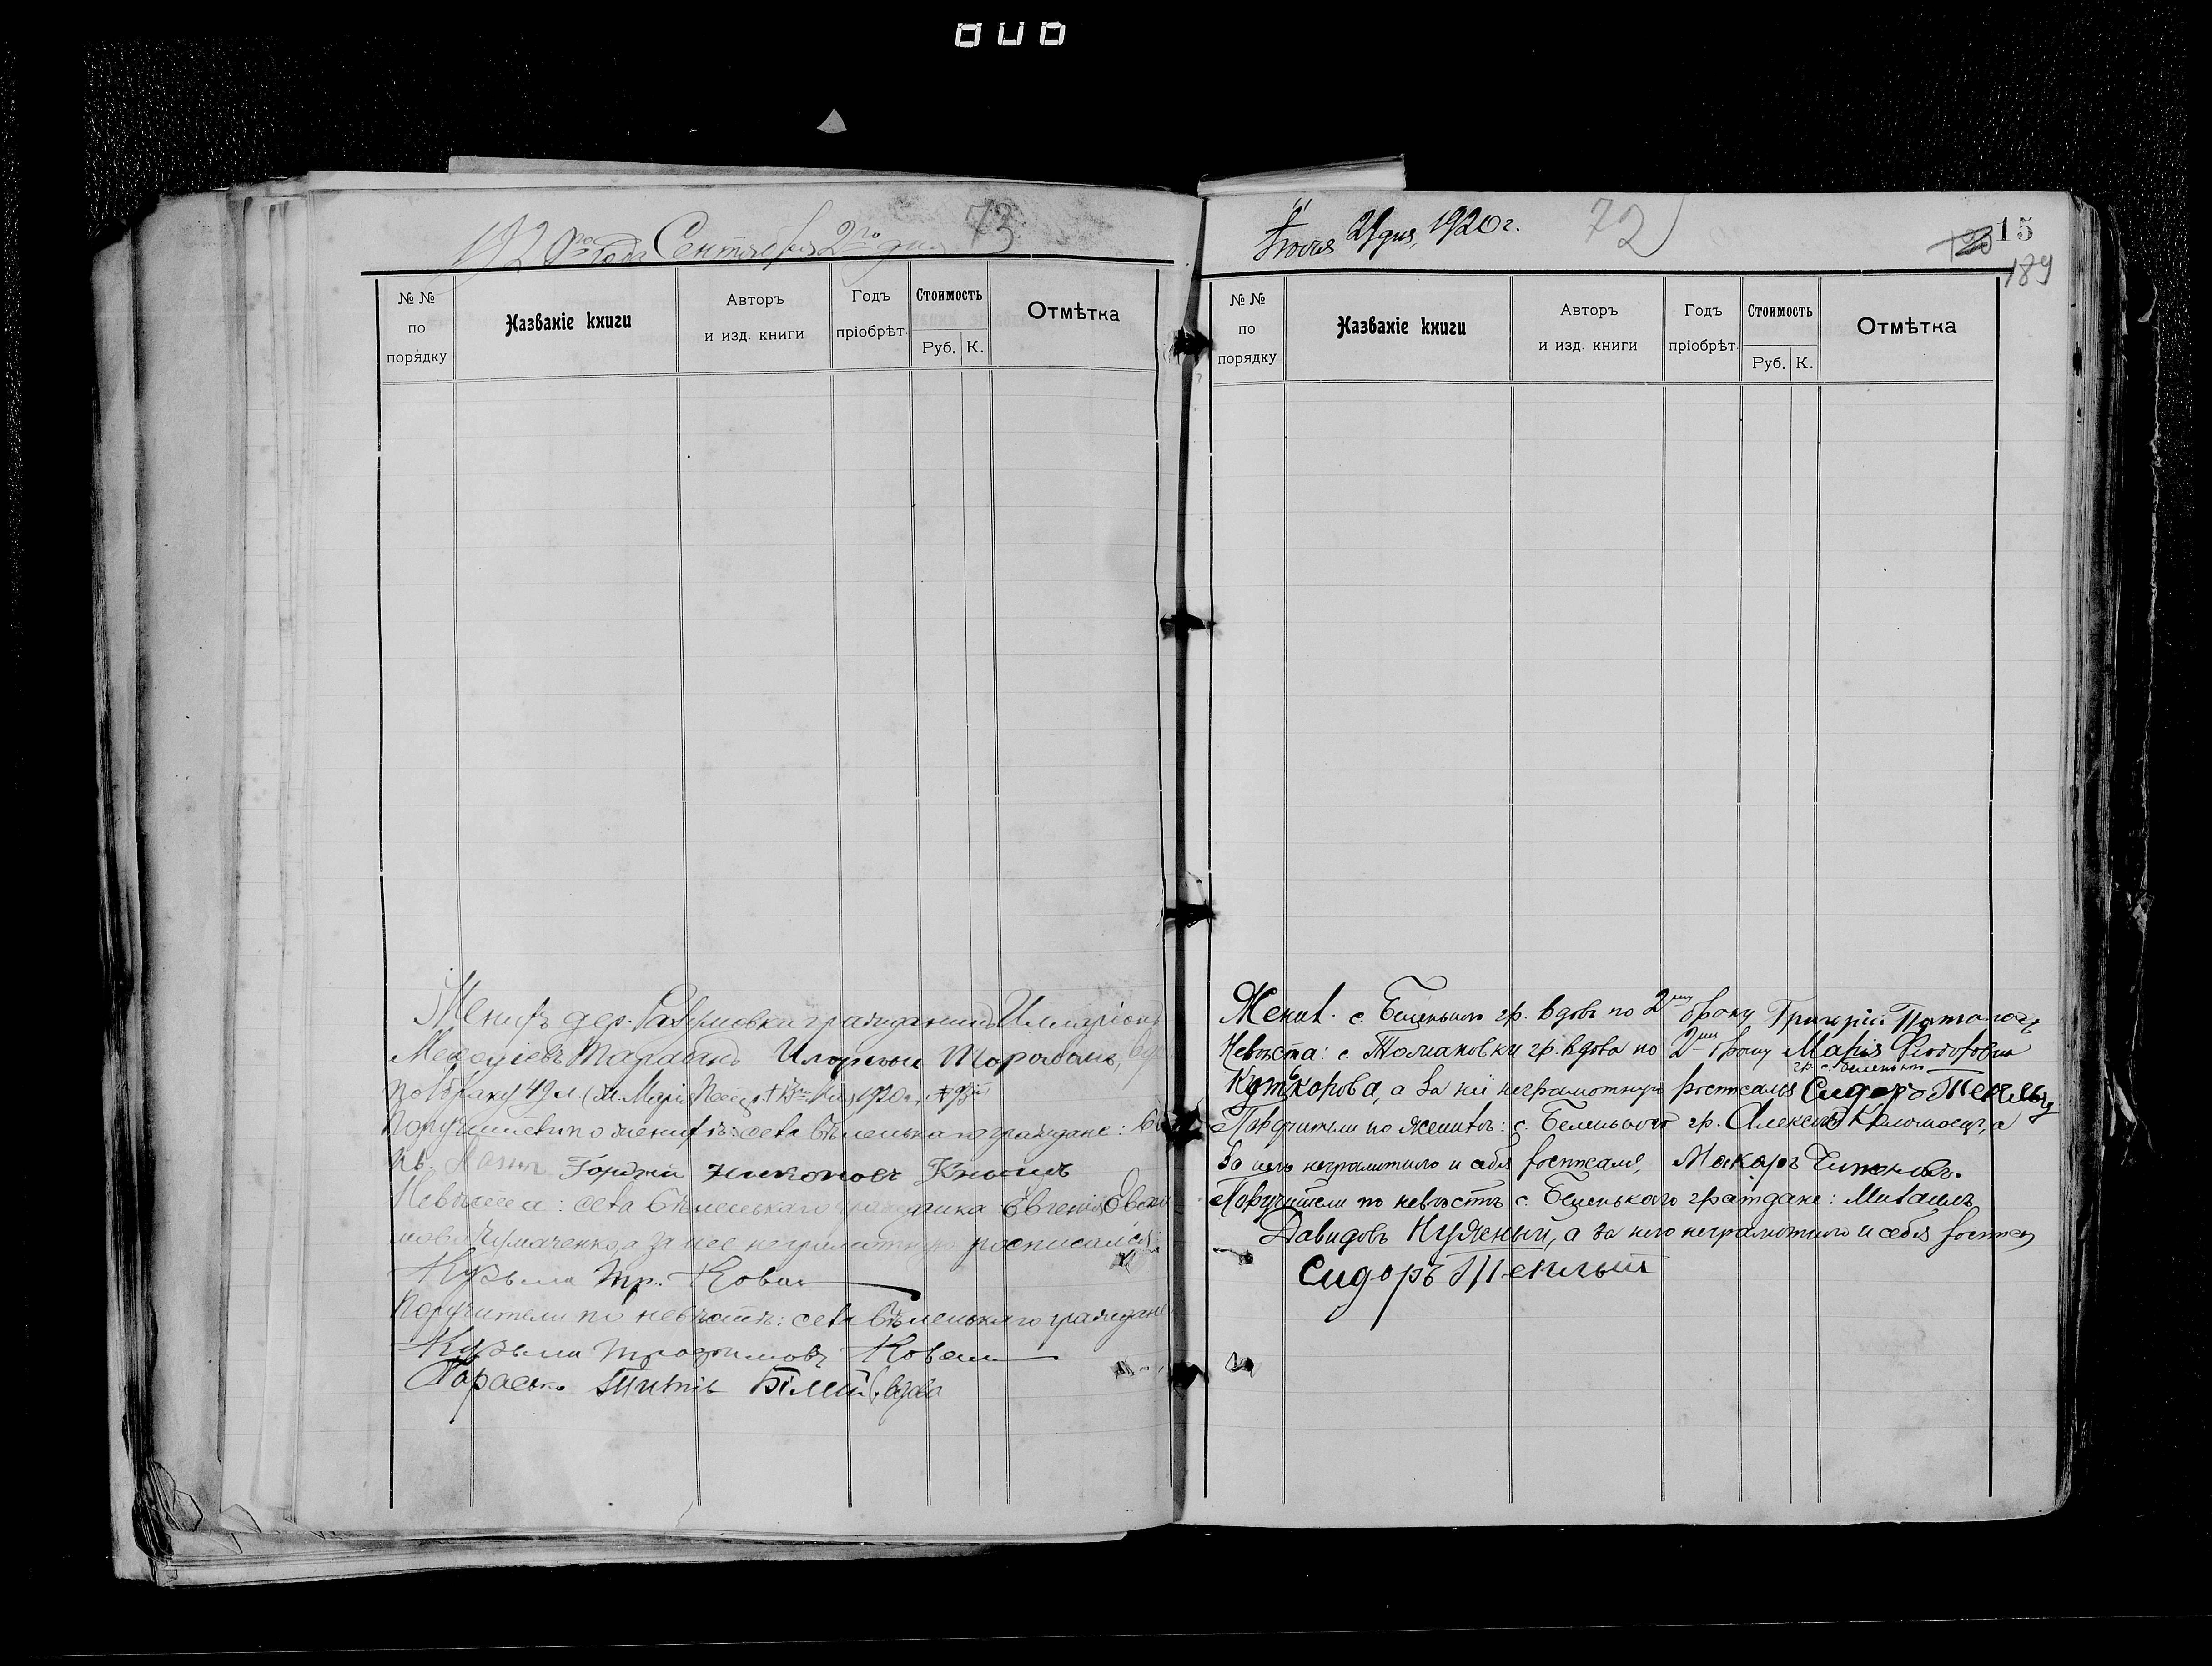 606
1920го года Сентября 2го дня 73
№ № по порядку
Названіе книги
Авторъ и изд. книги
Годъ пріобрѣт.
Стоимость
Руб. К.
Отмѣтка
Женихъ дер. Разумовки гражданинъ Илларіонъ
Тарабанъ Иларион Тарабанъ,
по I браку 49 л. 1920 г.
Поручители по женихѣ: села Бѣленькаго граждане:
Гордѣй Никоновъ Книшъ
Невѣста: села Бѣленькаго гражданка Евгенія
Чумаченко, а за нее неграмотную росписался:
Кузьма Тр. Коваль
Поручители по невѣстѣ: села Бѣленькаго граждане
Кузьма Трофимовъ Коваль
Тарасъ Білий
Іюля 21 дня, 1920 г. 72
15
189
№ № по порядку
Названіе книги
Авторъ и изд. книги
Годъ пріобрѣт.
Стоимость
Руб. К.
Отмѣтка
Жених. с. Беленького гр. вдовъ по 2му браку Григорій
Невѣста: с. Томаковки гр. вдова по 2му браку Марія Ѳеодоровна
гр. с. Беленького
а за неё неграмотную росписался Сидоръ Теплый
Поручители по женихѣ: с. Беленького гр. Алексей Коломоец, а
за него неграмотного и себя росписался, Макаръ
Поручители по невѣстѣ с. Беленького граждане: Михаилъ
Давидовъ Нужный, а за него неграмотного и себя
Сидоръ Теплый